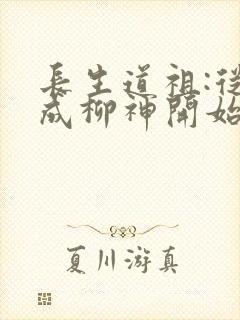 長生道祖:從
成柳神開始
夏川游真